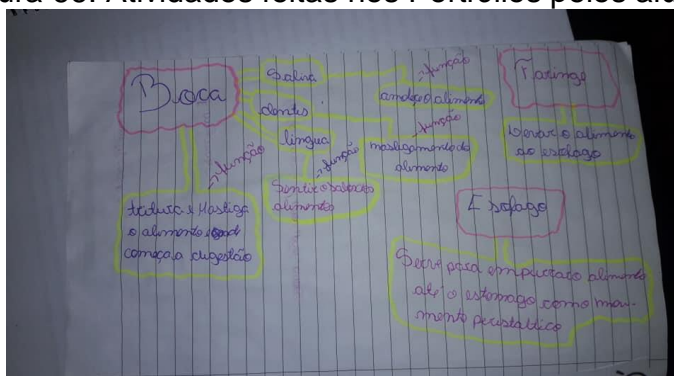 Boca
Saliva
dentes
língua
função
amolece o alimento
função
mastigamento do
alimento
função
Sentir o sabor do
alimento
função
tritura e Mastiga
o alimento
começa a digestão
Faringe
Levar o alimento
ao esôfago
Esofago
Serve para empurrar o alimento
até o estomago como movi-
mento peristáltico